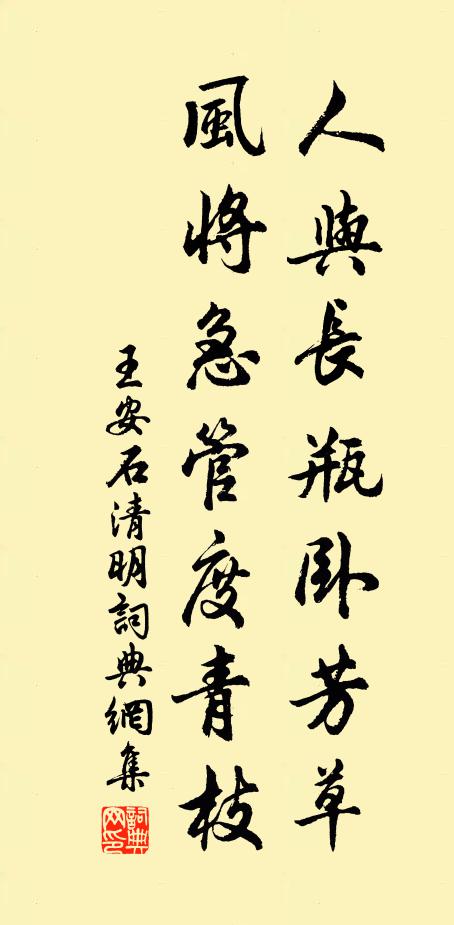 人與長瓶臥芳草
風將急管度青枝
王安石清明詞典網集
詞典網印